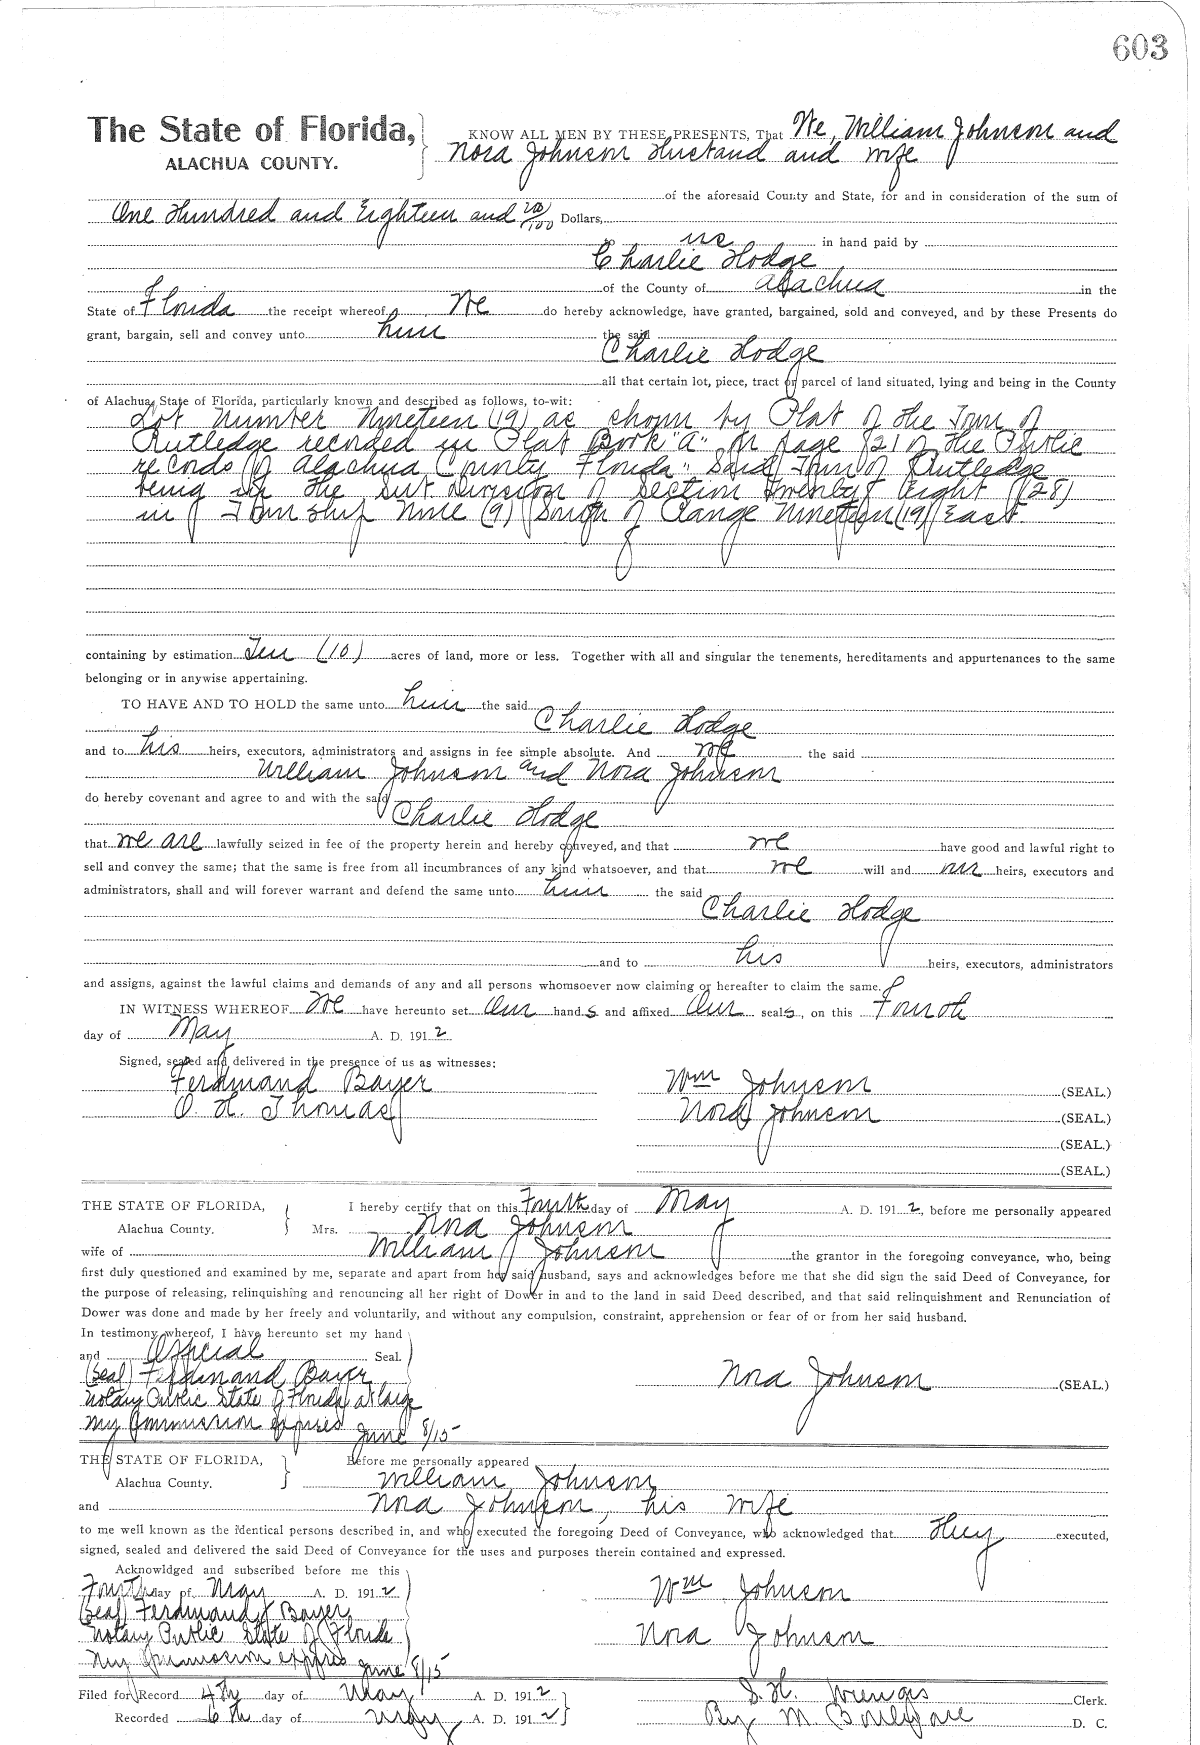 603
The State of Florida,
ALACHUA COUNTY.
KNOW ALL MEN BY THESE PRESENTS, That We, William Johnson and
Nora Johnson Husband and wife
of the aforesaid County and State, for and in consideration of the sum of
One Hundred and Eighteen and /100 Dollars,
us in hand paid by
Charlie Hodge
of the County of Alachua in the
State of Florida the receipt whereof We do hereby acknowledge, have granted, bargained, sold and conveyed, and by these Presents do
grant, bargain, sell and convey unto him the said
Charlie Hodge
all that certain lot, piece, tract or parcel of land situated, lying and being in the County
of Alachua, State of Florida, particularly known and described as follows, to-wit:
Lot Number Nineteen (19) as shown by Plat of the Town of
Rutledge recorded in Plat Book "A" on page 121 of the Public
records of Alachua County Florida. Said Town of Rutledge
being in the Sub Division of Section Twenty Eight (28)
in Township Nine (9) South of Range Nineteen (19) East.
containing by estimation Ten (10) acres of land, more or less. Together with all and singular the tenements, hereditaments and appurtenances to the same
belonging or in anywise appertaining.
TO HAVE AND TO HOLD the same unto him the said
Charlie Hodge
and to his heirs, executors, administrators and assigns in fee simple absolute. And we the said
William Johnson and Nora Johnson
do hereby covenant and agree to and with the said
Charlie Hodge
that we are lawfully seized in fee of the property herein and hereby conveyed, and that we have good and lawful right to
sell and convey the same; that the same is free from all incumbrances of any kind whatsoever, and that we will and our heirs, executors and
administrators, shall and will forever warrant and defend the same unto him the said
Charlie Hodge
and to his heirs, executors, administrators
and assigns, against the lawful claims and demands of any and all persons whomsoever now claiming or hereafter to claim the same.
IN WITNESS WHEREOF We have hereunto set Our hands and affixed Our seals, on this Fourth
day of May A. D. 1912
Signed, sealed and delivered in the presence of us as witnesses:
Ferdinand Bayer
O. H. Thomas
Wm Johnson (SEAL.)
Nora Johnson (SEAL.)
(SEAL.)
(SEAL.)
THE STATE OF FLORIDA,
Alachua County.
I hereby certify that on this Fourth day of May A. D. 1912, before me personally appeared
Mrs. Nora Johnson
wife of William Johnson the grantor in the foregoing conveyance, who, being
first duly questioned and examined by me, separate and apart from her said husband, says and acknowledges before me that she did sign the said Deed of Conveyance, for
the purpose of releasing, relinquishing and renouncing all her right of Dower in and to the land in said Deed described, and that said relinquishment and Renunciation of
Dower was done and made by her freely and voluntarily, and without any compulsion, constraint, apprehension or fear of or from her said husband.
In testimony whereof, I have hereunto set my hand
and Official Seal.
(Seal) Ferdinand Bayer,
Notary Public State of Florida at large
My Commission expires June 8/15
Nora Johnson (SEAL.)
THE STATE OF FLORIDA,
Alachua County.
Before me personally appeared
William Johnson
and Nora Johnson, his wife
to me well known as the identical persons described in, and who executed the foregoing Deed of Conveyance, who acknowledged that they executed,
signed, sealed and delivered the said Deed of Conveyance for the uses and purposes therein contained and expressed.
Acknowldged and subscribed before me this
Fourth day of May A. D. 1912
(Seal) Ferdinand Bayer,
Notary Public State of Florida
My Commission expires June 8/15
Wm Johnson
Nora Johnson
Filed for Record 4th day of May A. D. 1912
Recorded 6th day of May A. D. 1912
S. H. Wienges Clerk.
By M. D. C.